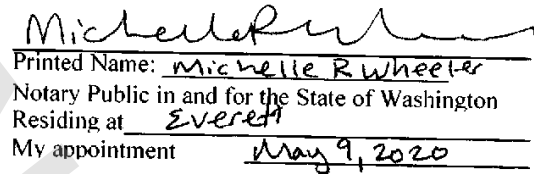 Michelle R Wheeler
Printed Name: Michelle R Wheeler
Notary Public in and for the State of Washington
Residing at Everett
My appointment May 9, 2020